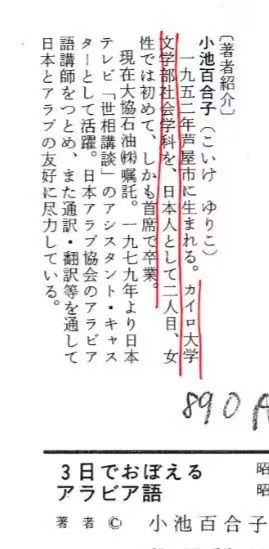 〔著者紹介〕
小池百合子（こいけ ゆりこ）
一九五二年芦屋市に生まれる。カイロ大学
文学部社会学科を、日本人として二人目、女
性では初めて、しかも首席で卒業。
現在大協石油㈱嘱託。一九七九年より日本
テレビ「世相講談」のアシスタント・キャス
ターとして活躍。日本アラブ協会のアラビア
語講師をつとめ、また通訳・翻訳等を通して
日本とアラブの友好に尽力している。
890
3日でおぼえる
アラビア語
昭
昭
著者 © 小池百合子